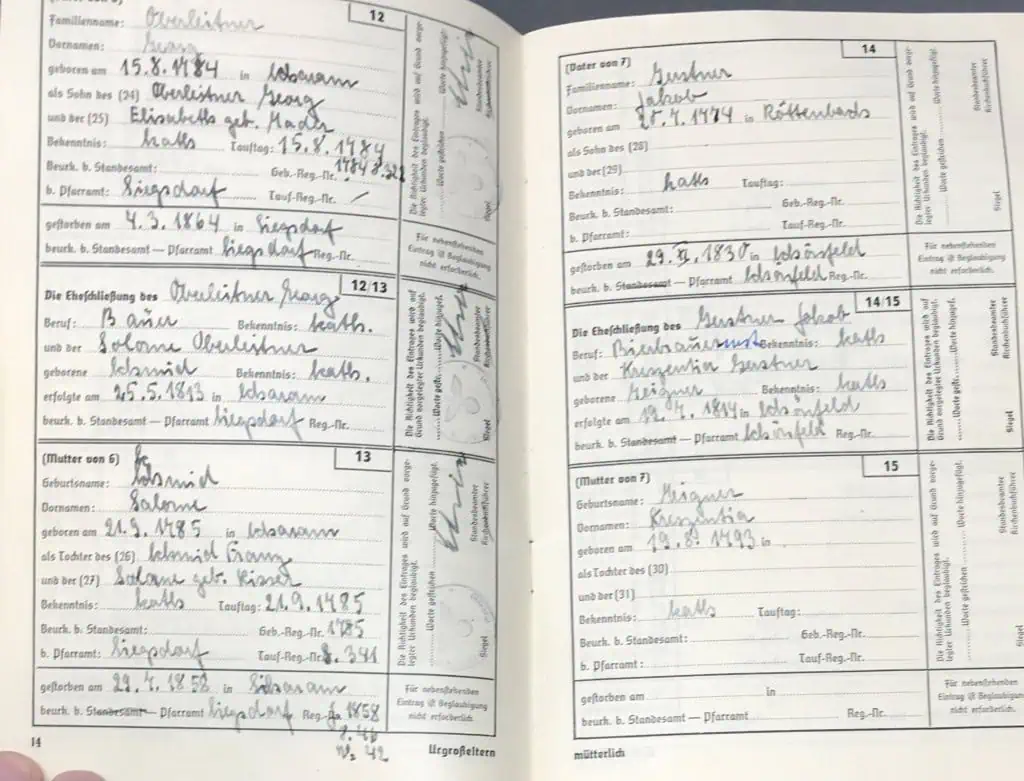 12
Familienname: Oberleitner
Vornamen: Georg
geboren am 15.8.1784 in Scharam
als Sohn des (24) Oberleitner Georg
und der (25) Elisabeth geb. Mader
Bekenntnis: kath Tauftag: 15.8.1784
Beurk. b. Standesamt: Geb.-Reg.-Nr. 1784 S. 322
b. Pfarramt: Siegsdorf Tauf-Reg.-Nr. /
gestorben am 4.3.1864 in Siegsdorf
beurk. b. Standesamt — Pfarramt Siegsdorf Reg.-Nr.
Die Richtigkeit des Eintrages wird auf Grund vorgelegter Urkunden beglaubigt.
Worte gestrichen Worte hinzugefügt.
Standesbeamter
Kirchenbuchführer
Siegel
Für nebenstehenden
Eintrag ist Beglaubigung
nicht erforderlich.
12/13
Die Eheschließung des Oberleitner Georg
Beruf: Bauer Bekenntnis: kath.
und der Salome Oberleitner
geborene Schmid Bekenntnis: kath.
erfolgte am 25.5.1813 in Scharam
beurk. b. Standesamt — Pfarramt Siegsdorf Reg.-Nr.
Die Richtigkeit des Eintrages wird auf Grund vorgelegter Urkunden beglaubigt.
Worte gestr. Worte hinzugef.
Standesbeamter
Kirchenbuchführer
Siegel
(Mutter von 6) 13
Geburtsname: Schmid
Vornamen: Salome
geboren am 21.9.1785 in Scharam
als Tochter des (26) Schmid Franz
und der (27) Salome geb. Kisser
Bekenntnis: kath Tauftag: 21.9.1785
Beurk. b. Standesamt: Geb.-Reg.-Nr. 1785
b. Pfarramt: Siegsdorf Tauf-Reg.-Nr. S. 341
gestorben am 29.4.1858 in Scharam
beurk. b. Standesamt — Pfarramt Siegsdorf Reg. 1858
S. 46
Nr. 42
Die Richtigkeit des Eintrages wird auf Grund vorgelegter Urkunden beglaubigt.
Worte gestrichen Worte hinzugefügt.
Standesbeamter
Kirchenbuchführer
Siegel
Für nebenstehenden
Eintrag ist Beglaubigung
nicht erforderlich.
14 Urgroßeltern
(Vater von 7) 14
Familienname: Gerstner
Vornamen: Jakob
geboren am 25.7.1774 in Röttenbach
als Sohn des (28)
und der (29)
Bekenntnis: kath Tauftag:
Beurk. b. Standesamt: Geb.-Reg.-Nr.
b. Pfarramt: Tauf-Reg.-Nr.
gestorben am 29. XI. 1830 in Schönfeld
beurk. b. Standesamt — Pfarramt Schönfeld Reg.-Nr.
Die Richtigkeit des Eintrages wird auf Grund vorgelegter Urkunden beglaubigt.
Worte gestrichen Worte hinzugefügt.
Standesbeamter
Kirchenbuchführer
Siegel
Für nebenstehenden
Eintrag ist Beglaubigung
nicht erforderlich.
14/15
Die Eheschließung des Gerstner Jakob
Beruf: Bierbrauer Bekenntnis: kath
und der Kreszentia Gerstner
geborene Geigner Bekenntnis: kath
erfolgte am 19.4.1814 in Schönfeld
beurk. b. Standesamt — Pfarramt Schönfeld Reg.-Nr.
Die Richtigkeit des Eintrages wird auf Grund vorgelegter Urkunden beglaubigt.
Worte gestr. Worte hinzugef.
Standesbeamter
Kirchenbuchführer
Siegel
(Mutter von 7) 15
Geburtsname: Geigner
Vornamen: Kreszentia
geboren am 19.8.1793 in
als Tochter des (30)
und der (31)
Bekenntnis: kath Tauftag:
Beurk. b. Standesamt: Geb.-Reg.-Nr.
b. Pfarramt: Tauf-Reg.-Nr.
gestorben am in
beurk. b. Standesamt — Pfarramt Reg.-Nr.
Die Richtigkeit des Eintrages wird auf Grund vorgelegter Urkunden beglaubigt.
Worte gestrichen Worte hinzugefügt.
Standesbeamter
Kirchenbuchführer
Siegel
Für nebenstehenden
Eintrag ist Beglaubigung
nicht erforderlich.
mütterlich